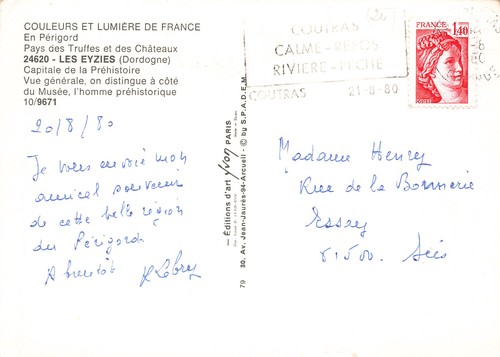 COULEURS ET LUMIÈRE DE FRANCE
En Périgord
Pays des Truffes et des Châteaux
24620 - LES EYZIES (Dordogne)
Capitale de la Préhistoire
Vue générale, on distingue à côté
du Musée, l'homme préhistorique
10/9671
20/8/80
Je vous envoie mon
amical souvenir
de cette belle région
du Périgord
A bientôt
79 30, Av. Jean-Jaurès-94-Arcueil - © by S.P.A.D.E.M.
— Éditions d'art yvon PARIS
COUTRAS
CALME-REPOS
RIVIERE-PECHE
COUTRAS 21-8-80
FRANCE
1,40
Madame Henry
Rue de la Bonnerie
Essay
61500 Sées